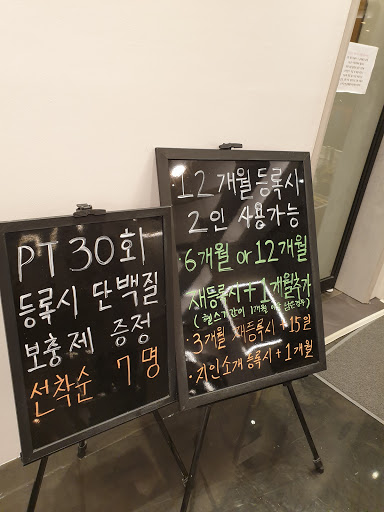 PT 30회
등록시 단백질
보충제 증정
선착순 7명
12개월 등록시
2인 사용가능
·6개월 or 12개월
재등록시 + 1개월추가
(헬스기간이 1개월 이상 남은경우)
·3개월 재등록시 + 15일
·지인소개 등록시 + 1개월